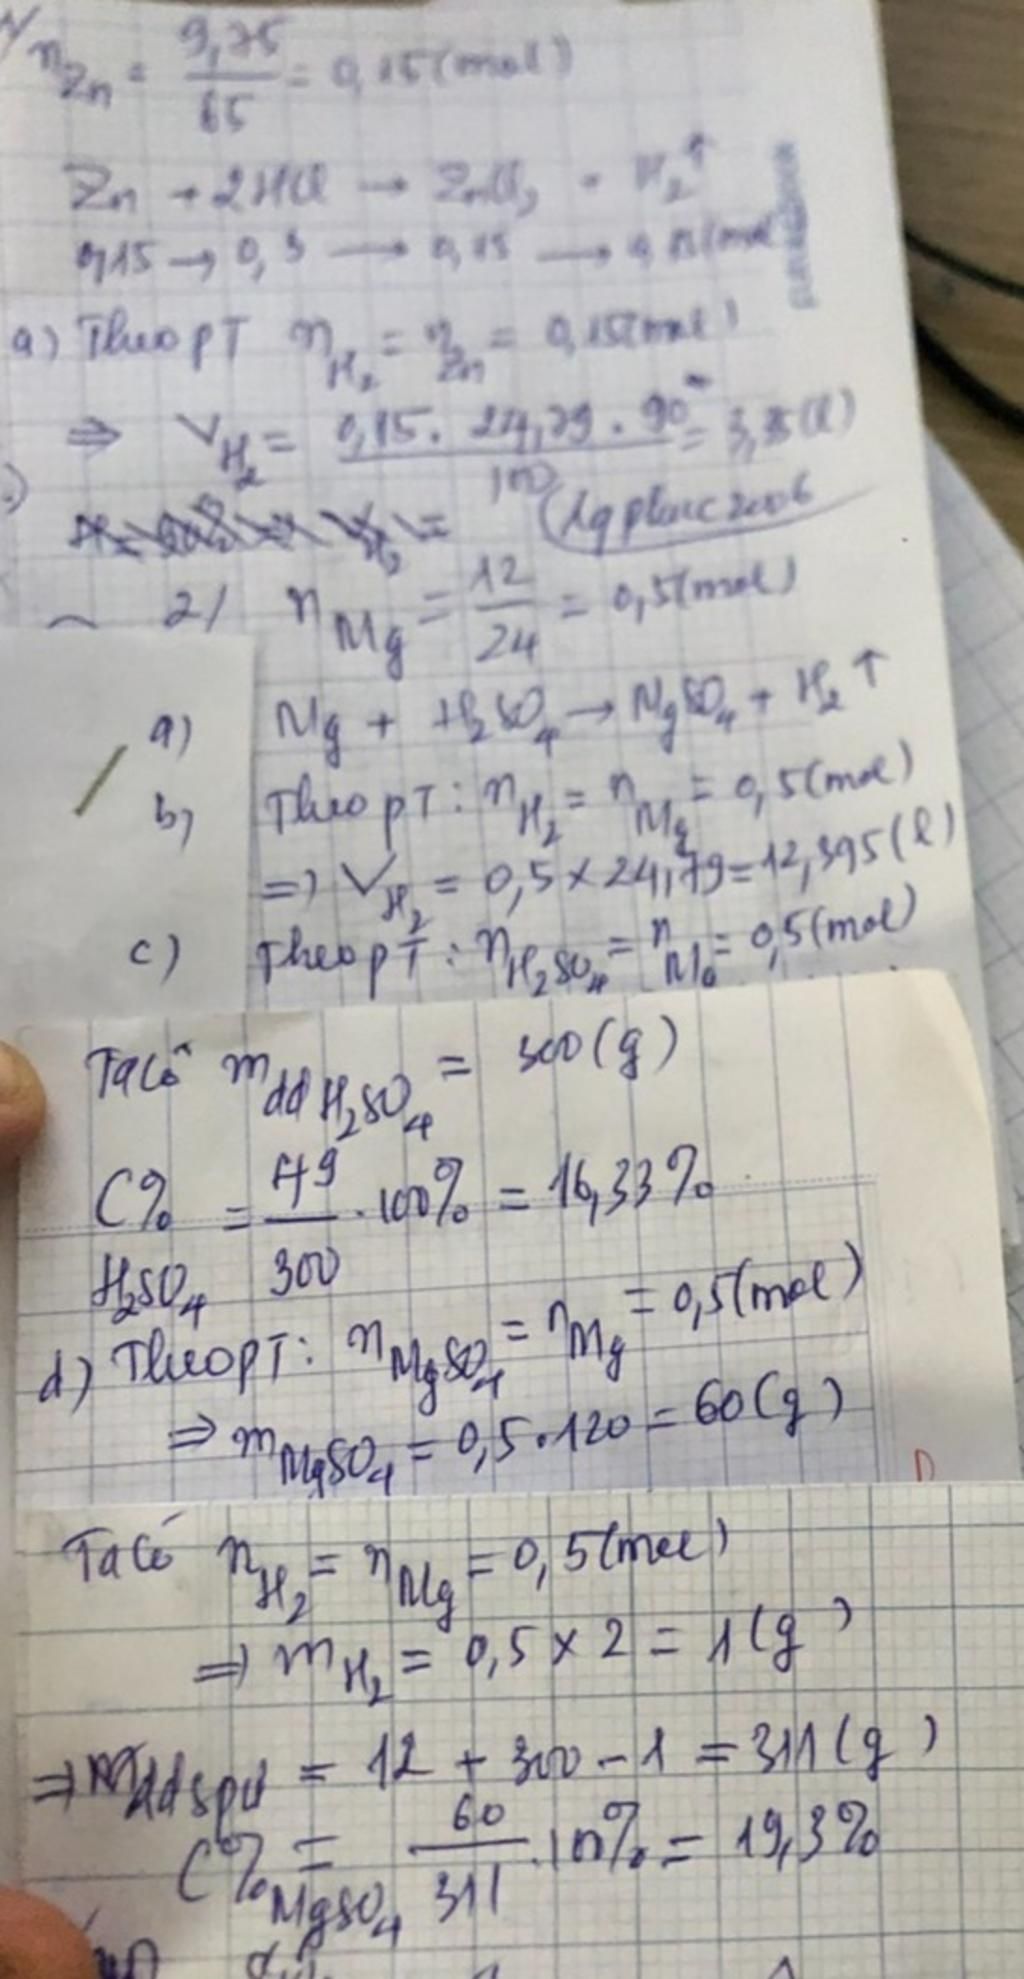 1/ n Zn = 9,75/65 = 0,15(mol)
Zn + 2HCl → ZnCl2 + H2↑
0,15 → 0,3 → 0,15 → 0,15(mol
a) Theo PT n H2 = n Zn = 0,15(mol)
⇒ V H2 = 0,15. 24,79 . 90/100 = 3,35(l)
2/ n Mg = 12/24 = 0,5(mol)
a) Mg + H2SO4 → MgSO4 + H2↑
b) Theo PT: n H2 = n Mg = 0,5(mol)
=> V H2 = 0,5 x 24,79 = 12,395(l)
c) Theo PT: n H2SO4 = n Mg = 0,5(mol)
Ta có m dd H2SO4 = 300(g)
C% H2SO4 = 49/300 . 100% = 16,33%
d) Theo PT: n MgSO4 = n Mg = 0,5(mol)
⇒ m MgSO4 = 0,5.120 = 60(g)
Ta có n H2 = n Mg = 0,5(mol)
=> m H2 = 0,5 x 2 = 1(g)
=> m ddspứ = 12 + 300 - 1 = 311(g)
C% MgSO4 = 60/311 .100% = 19,3%